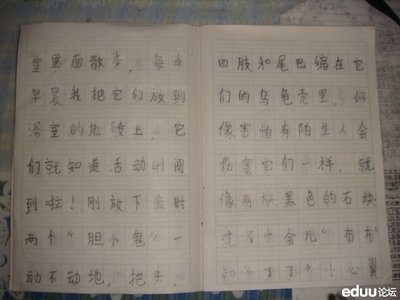 室里面散步,每当
早晨我把它们放到
浴室的地砖上,它
们就知道活动时间
到啦!刚放下当时
两个“胆小鬼”一
动不动地,把头、
四肢和尾巴缩在它
们的乌龟壳里,好
像害怕有陌生人会
伤害它们一样,就
像两块黑色的石块
过了一会儿“布布”
和 丁丁 小心翼
eduu论坛